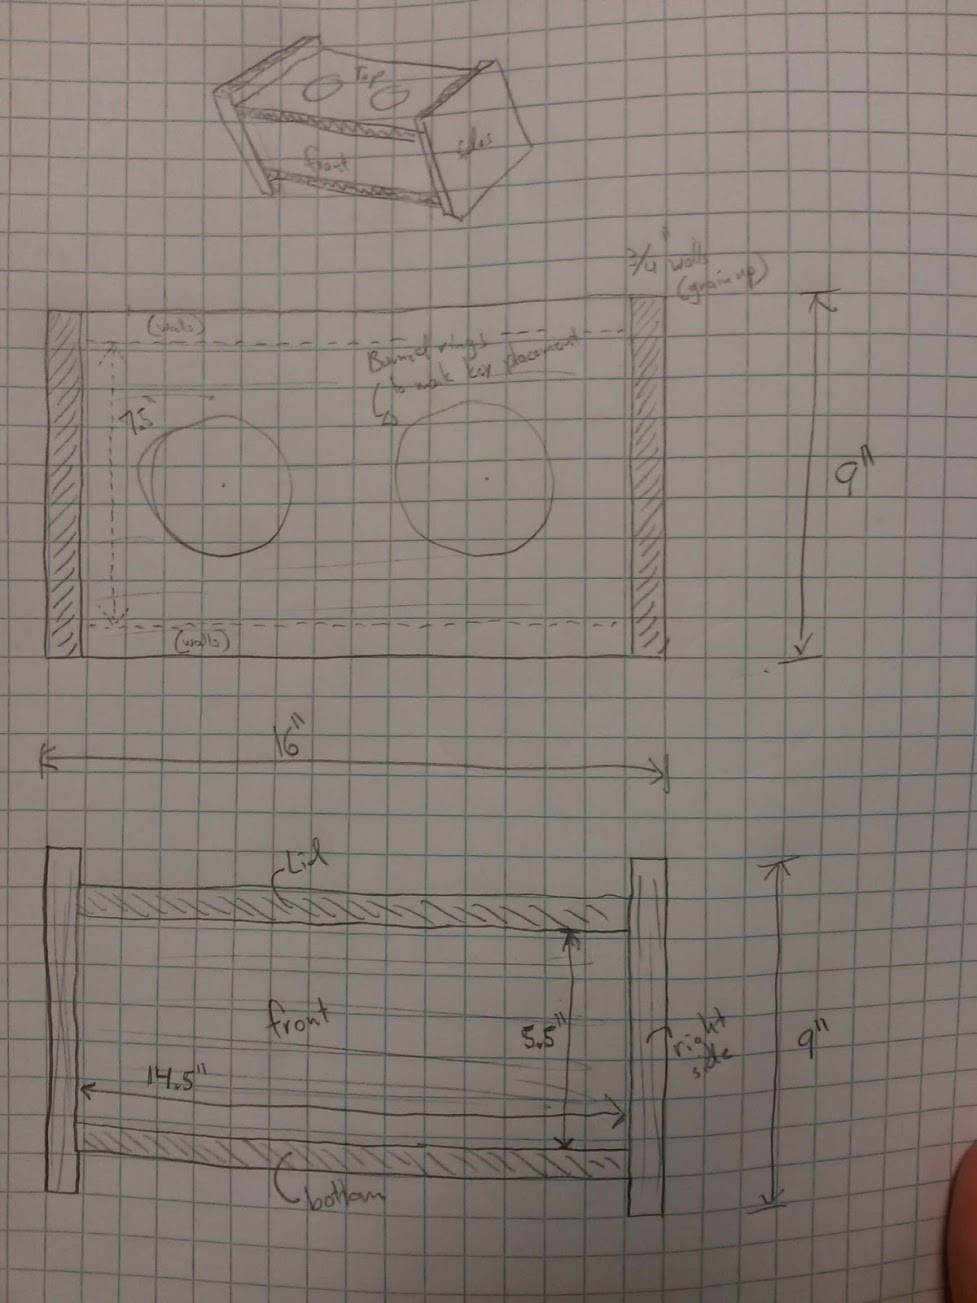 Top
front
sides
3/4" walls
(grain up)
(walls)
Burned rings
to mark key placement
7.5"
9"
(walls)
16"
Lid
front
5.5"
right
side
9"
14.5"
bottom